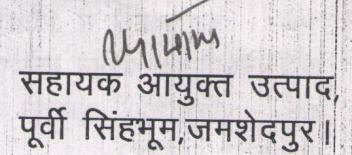 सहायक आयुक्त उत्पाद,
पूर्वी सिंहभूम,जमशेदपुर।